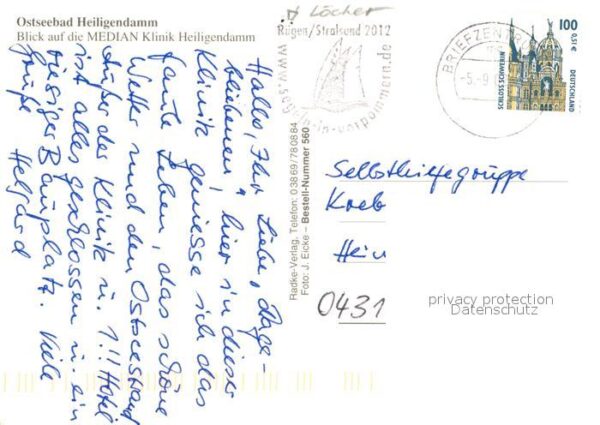 Ostseebad Heiligendamm
Blick auf die MEDIAN Klinik Heiligendamm
Löcher
Rügen/Stralsund 2012
BRIEFZENTRUM
-5.-9
100
0,51€
SCHLOSS SCHWERIN
DEUTSCHLAND
Hallo, Ihr Liebe, Dage-
bliebenen, hier in dieser
Klinik genieße ich das
faule Leben, das schöne
Wetter und den Ostseestrand
Außer der Klinik u. 1!! Hotel
ist alles geschlossen u. ein
riesiger Bauplatz. Viele
Grüße Helgard
Radke-Verlag, Telefon: 03869/780884
Foto: J. Eicke – Bestell-Nummer 560
Selbsthilfegruppe
Kreb
Hein
0431
privacy protection
Datenschutz